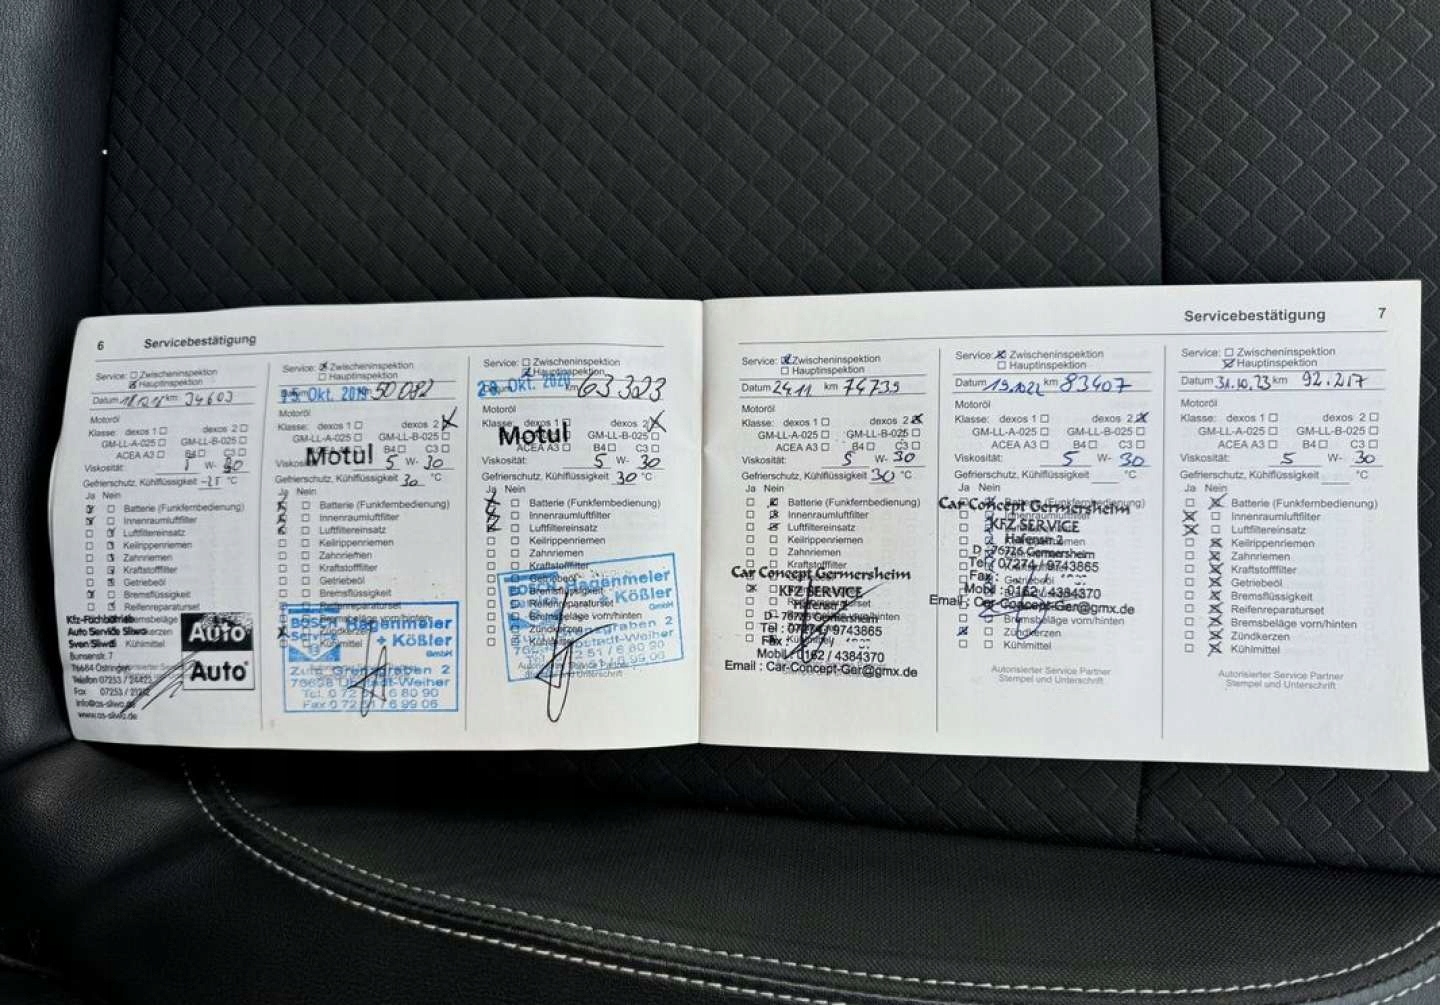 6 Servicebestätigung
Service: Zwischeninspektion
Hauptinspektion
Datum km 34603
Motoröl
Klasse: dexos 1 dexos 2
GM-LL-A-025 GM-LL-B-025
ACEA A3 B4 C3
Viskosität: 5 W- 30
Gefrierschutz, Kühlflüssigkeit -25 °C
Ja Nein
Batterie (Funkfernbedienung)
Innenraumluftfilter
Luftfiltereinsatz
Keilrippenriemen
Zahnriemen
Kraftstofffilter
Getriebeöl
Bremsflüssigkeit
Reifenreparaturset
Kfz-Fachbetrieb
Auto Service Sliwa
Sven Sliwa
76684 Östringen
Telefon 07253 /
Fax 07253 /
www.as-sliwa.de
Auto
Auto
Service: Zwischeninspektion
Hauptinspektion
15. Okt. 2019 50082
Motoröl
Klasse: dexos 1 dexos 2
GM-LL-A-025 GM-LL-B-025
Motul B4 C3
5 W- 30
Gefrierschutz, Kühlflüssigkeit 30 °C
Ja Nein
Batterie (Funkfernbedienung)
Innenraumluftfilter
Luftfiltereinsatz
Keilrippenriemen
Zahnriemen
Kraftstofffilter
Getriebeöl
Bremsflüssigkeit
Reifenreparaturset
Zündkerzen
Kühlmittel
BOSCH Hagenmeier
Service + Kößler
GmbH
Fax 0 72 51 / 6 99 06
Service: Zwischeninspektion
Hauptinspektion
28. Okt. 2020 63323
Motoröl
Klasse: dexos 1 dexos 2
Motul
GM-LL-B-025
ACEA A3 B4 C3
Viskosität: 5 W- 30
Gefrierschutz, Kühlflüssigkeit 30 °C
Ja Nein
Batterie (Funkfernbedienung)
Innenraumluftfilter
Luftfiltereinsatz
Keilrippenriemen
Zahnriemen
Kraftstofffilter
Getriebeöl
Bremsflüssigkeit
Reifenreparaturset
Bremsbeläge vorn/hinten
Zündkerzen
BOSCH Hagenmeier
+ Kößler
GmbH
Servicebestätigung 7
Service: Zwischeninspektion
Hauptinspektion
Datum 24.11 km 74735
Motoröl
Klasse: dexos 1 dexos 2
GM-LL-A-025 GM-LL-B-025
ACEA A3 B4 C3
Viskosität: 5 W- 30
Gefrierschutz, Kühlflüssigkeit 30 °C
Ja Nein
Batterie (Funkfernbedienung)
Innenraumluftfilter
Luftfiltereinsatz
Keilrippenriemen
Zahnriemen
Kraftstofffilter
Car Concept Germersheim
KFZ SERVICE
Hafenstr 2
D - 76726 Germersheim
Tel : 07274 / 9743865
Fax :
Mobil : 0162 / 4384370
Email : Car-Concept-Ger@gmx.de
Service: Zwischeninspektion
Hauptinspektion
Datum 19.10.22 km 83407
Motoröl
Klasse: dexos 1 dexos 2
GM-LL-A-025 GM-LL-B-025
ACEA A3 B4 C3
Viskosität: 5 W- 30
Gefrierschutz, Kühlflüssigkeit °C
Ja Nein
Car Concept Germersheim
KFZ SERVICE
Hafenstr 2
D - 76726 Germersheim
Tel : 07274 / 9743865
Fax :
Mobil : 0162 / 4384370
Email : Car-Concept-Ger@gmx.de
Bremsbeläge vorn/hinten
Zündkerzen
Kühlmittel
Autorisierter Service Partner
Stempel und Unterschrift
Service: Zwischeninspektion
Hauptinspektion
Datum 31.10.23 km 92.217
Motoröl
Klasse: dexos 1 dexos 2
GM-LL-A-025 GM-LL-B-025
ACEA A3 B4 C3
Viskosität: 5 W- 30
Gefrierschutz, Kühlflüssigkeit °C
Ja Nein
Batterie (Funkfernbedienung)
Innenraumluftfilter
Luftfiltereinsatz
Keilrippenriemen
Zahnriemen
Kraftstofffilter
Getriebeöl
Bremsflüssigkeit
Reifenreparaturset
Bremsbeläge vorn/hinten
Zündkerzen
Kühlmittel
Autorisierter Service Partner
Stempel und Unterschrift